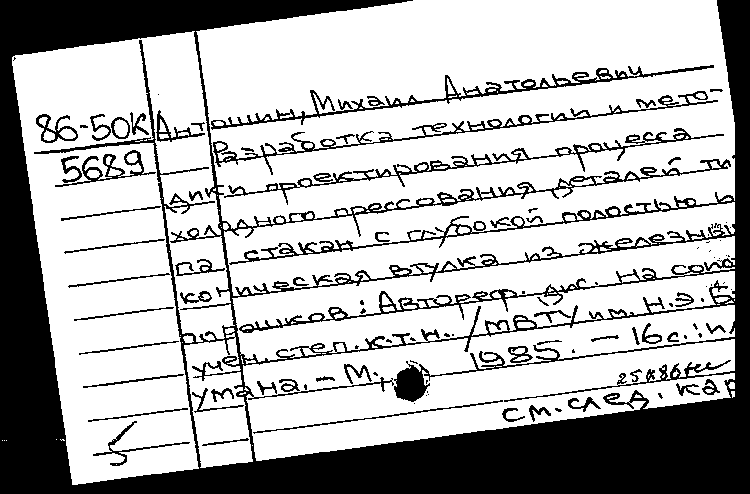 86-50К
5689
Антошин, Михаил Анатольевич
Разработка технологии и мето-
дики проектирования процесса
холодного прессования деталей ти
па стакан с глубокой полостью и
коническая втулка из железных
порошков: Автореф. дис. на соис
учен. степ. к.т.н. / МВТУ им. Н.Э. Б
умана. – М., 1985. – 16 с. : ил
см. след. кар
5